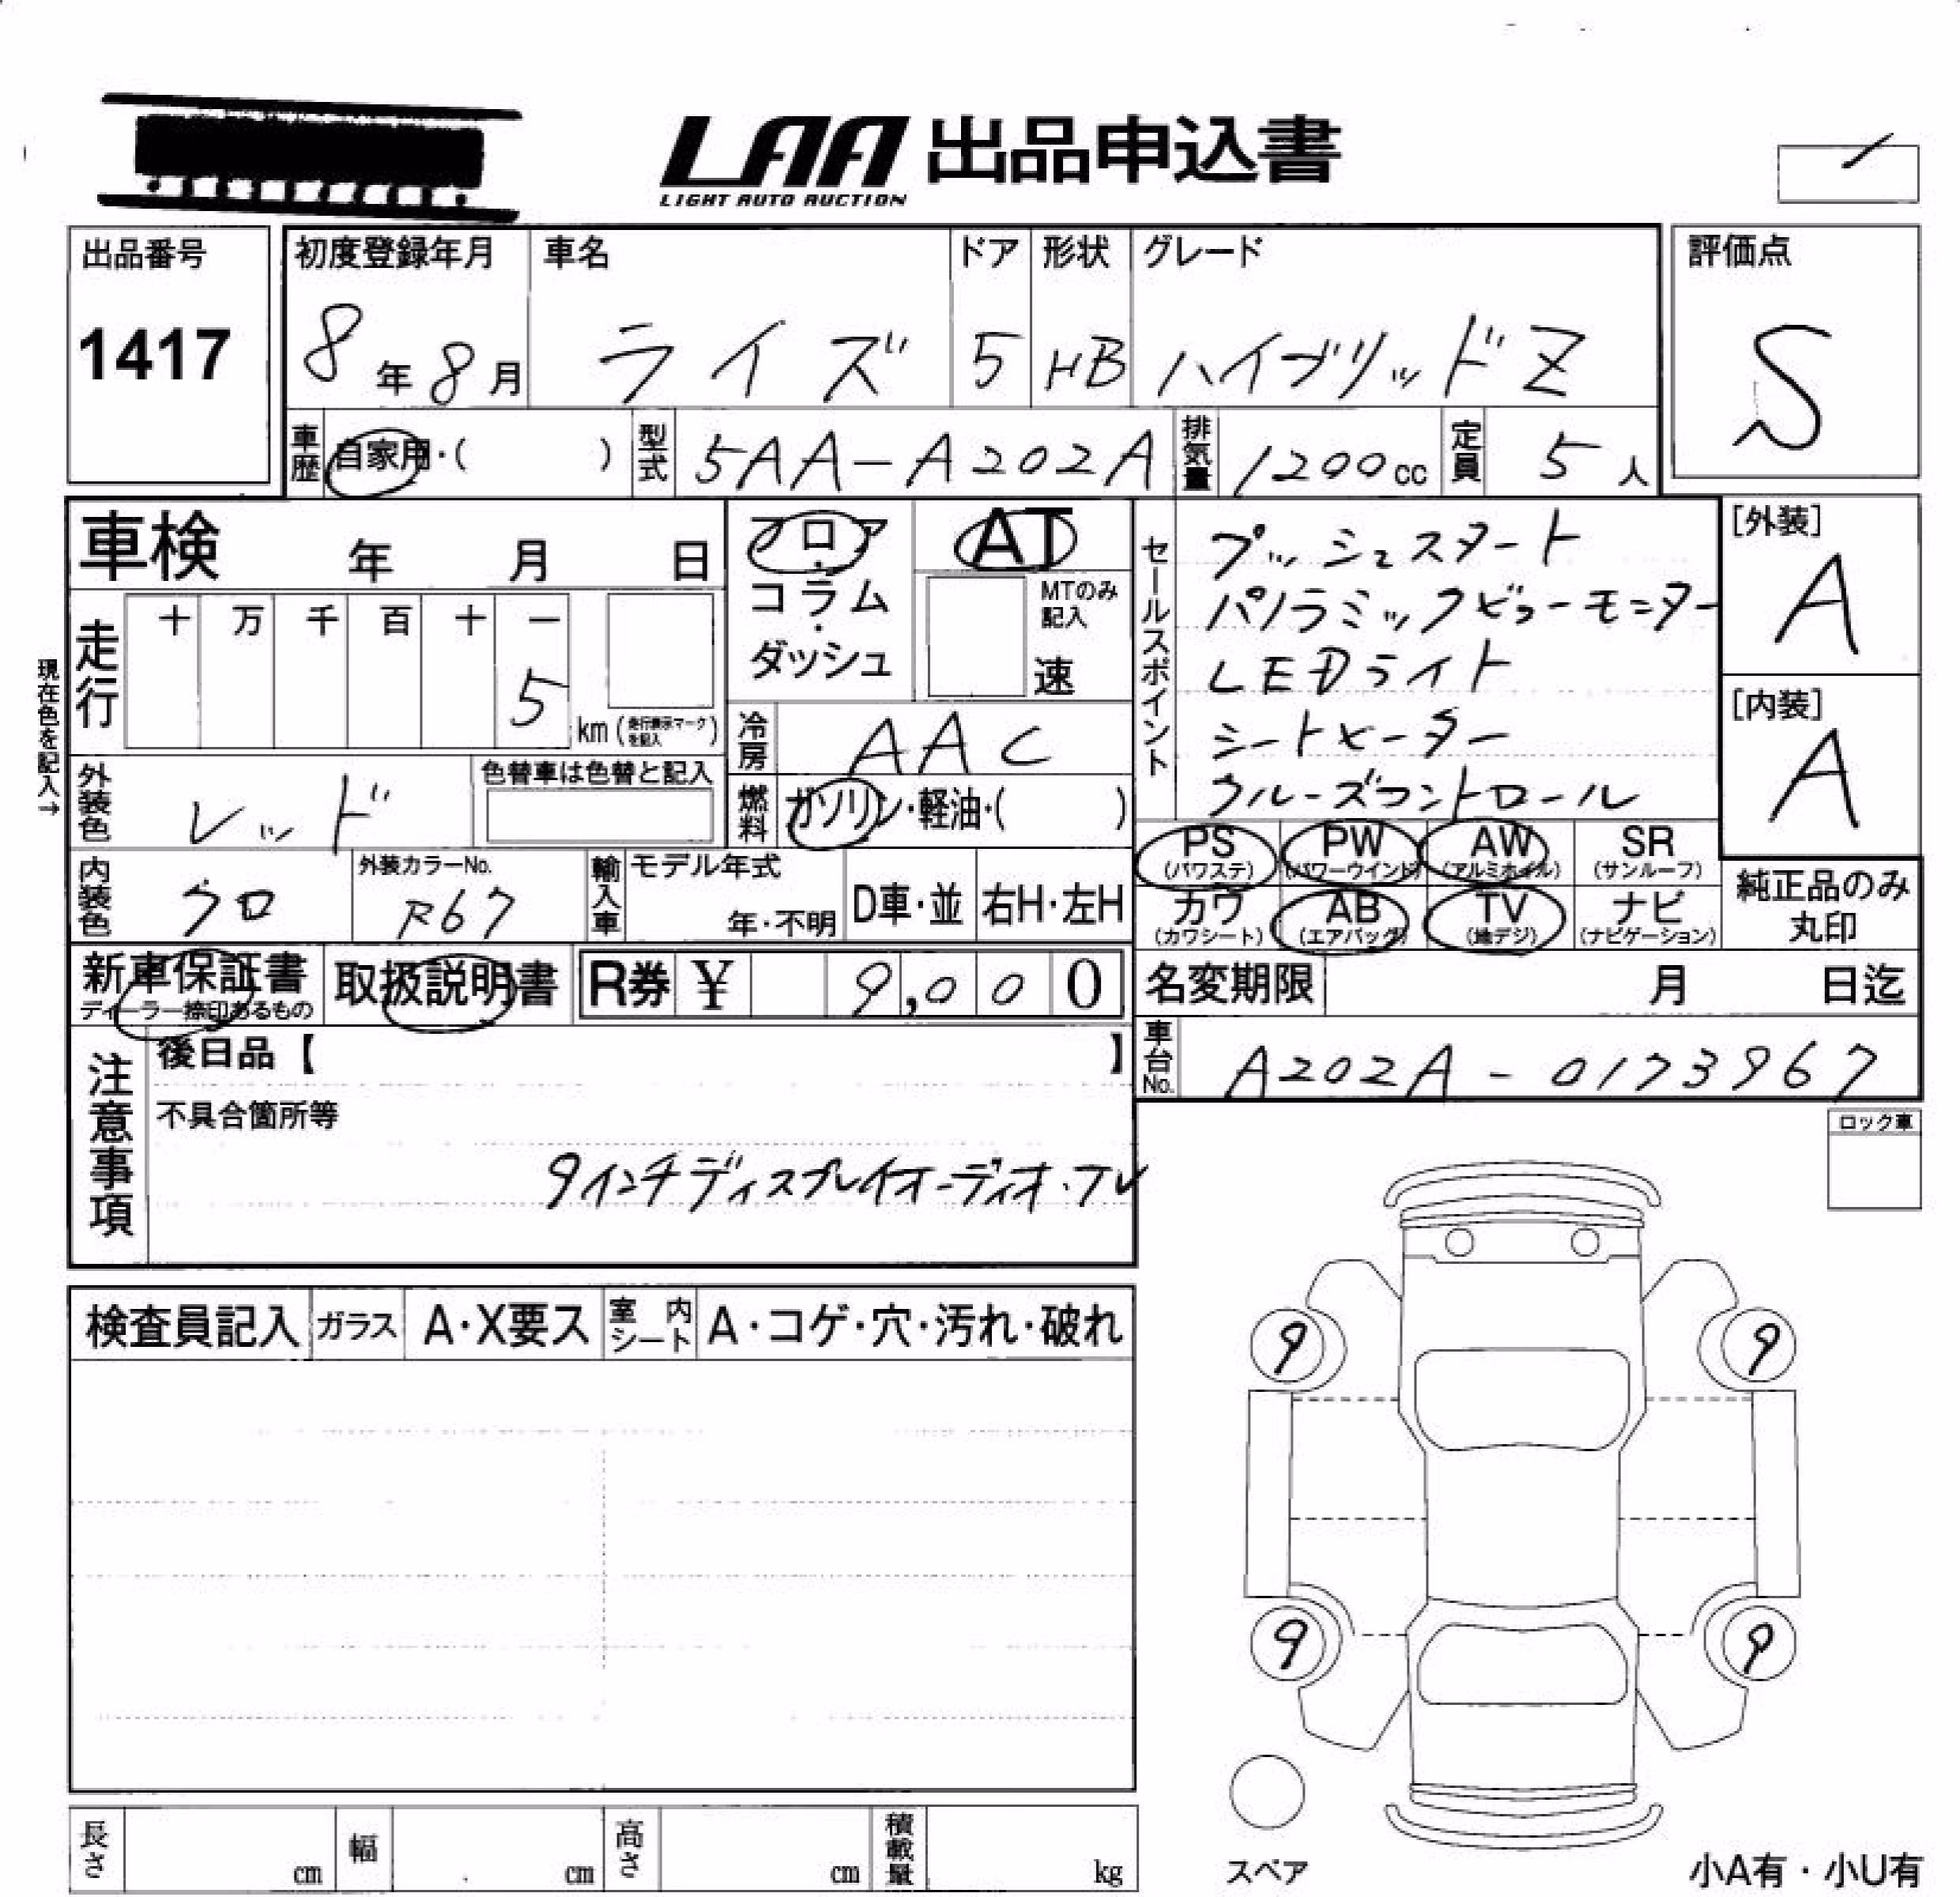 LAA 出品申込書
LIGHT AUTO AUCTION
出品番号
1417
初度登録年月
8年8月
車名
ライズ
ドア
5
形状
HB
グレード
ハイブリッドZ
評価点
S
車歴
自家用・( )
型式
5AA-A202A
排気量
1200cc
定員
5人
車検 年 月 日
フロア
・
コラム
・
ダッシュ
AT
MTのみ
記入
速
セールスポイント
プッシュスタート
パノラミックビューモニター
LEDライト
シートヒーター
クルーズコントロール
[外装]
A
[内装]
A
現在色を記入→
走行
十 万 千 百 十 一
5
km(走行表示マークを記入)
冷房
AAC
外装色
レッド
色替車は色替と記入
燃料
ガソリン・軽油・( )
PS
(パワステ)
PW
(パワーウインド)
AW
(アルミホイル)
SR
(サンルーフ)
カワ
(カワシート)
AB
(エアバッグ)
TV
(地デジ)
ナビ
(ナビゲーション)
純正品のみ
丸印
内装色
クロ
外装カラーNo.
R67
輸入車
モデル年式
年・不明
D車・並
右H・左H
新車保証書
ディーラー捺印あるもの
取扱説明書
R券 ¥ 9,000
名変期限 月 日迄
車台No.
A202A-0173967
注意事項
後日品【 】
不具合箇所等
9インチディスプレイオーディオ・フレ
ロック車
検査員記入
ガラス
A・X要ス
室内シート
A・コゲ・穴・汚れ・破れ
9
9
9
9
長さ
cm
幅
cm
高さ
cm
積載量
kg
スペア
小A有・小U有